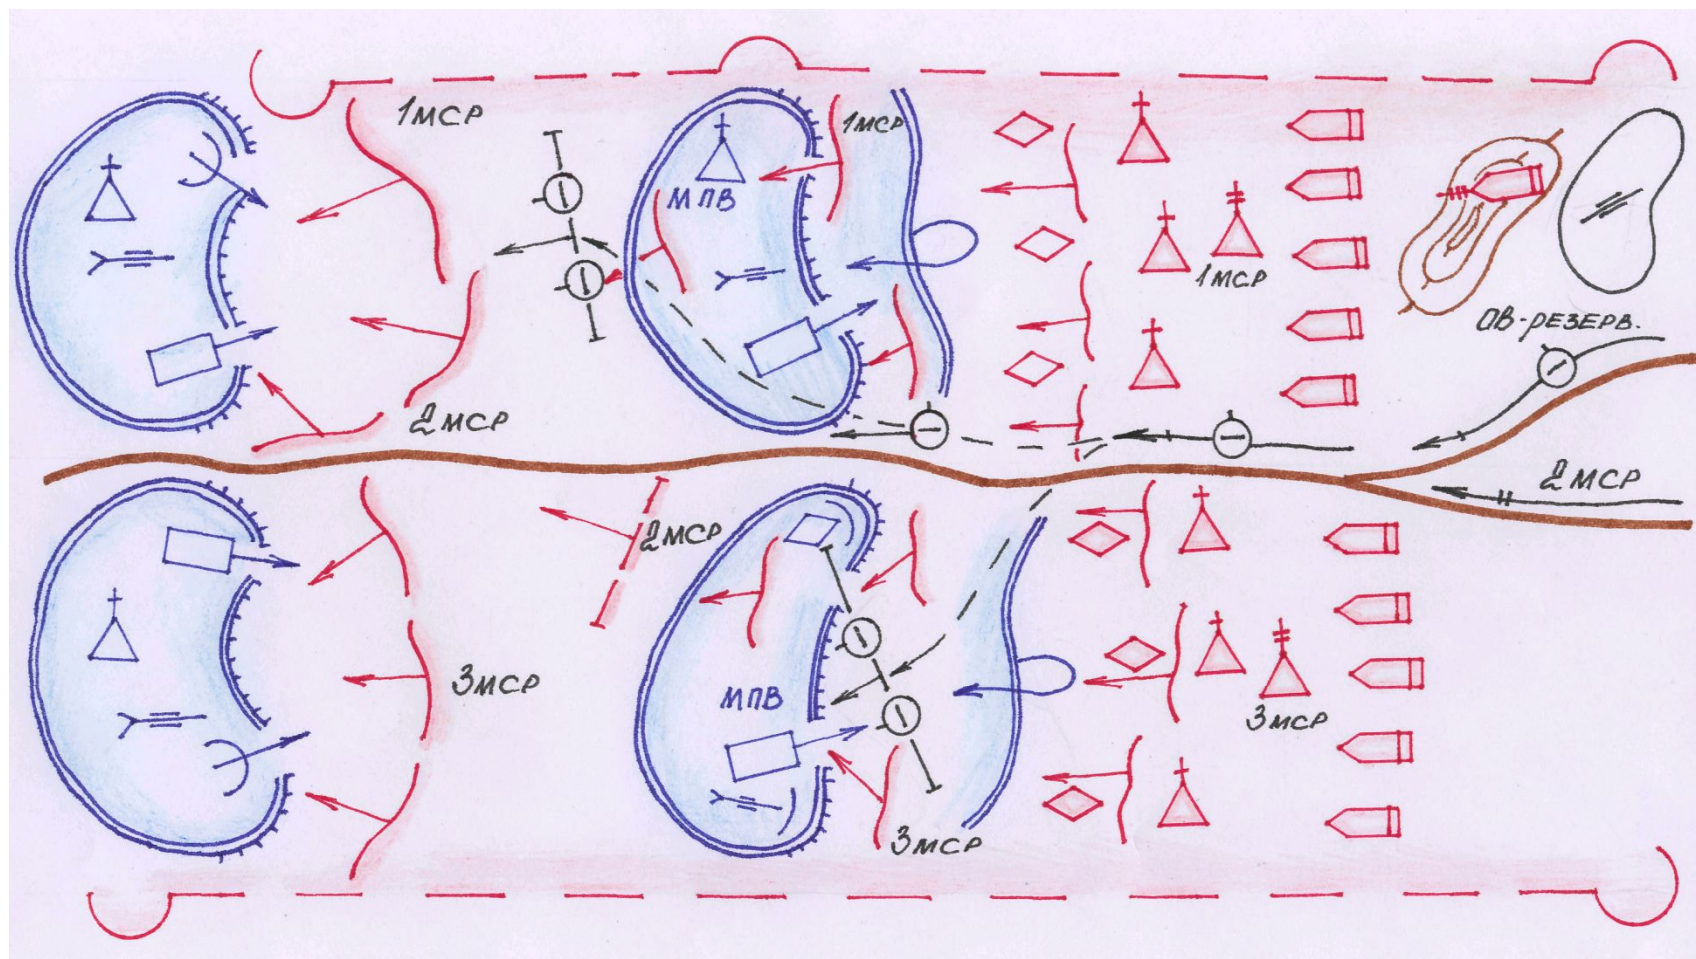 1МСР
1МСР
МПВ
1МСР
ОВ-РЕЗЕРВ.
2МСР
2МСР
2МСР
3МСР
МПВ
3МСР
3МСР